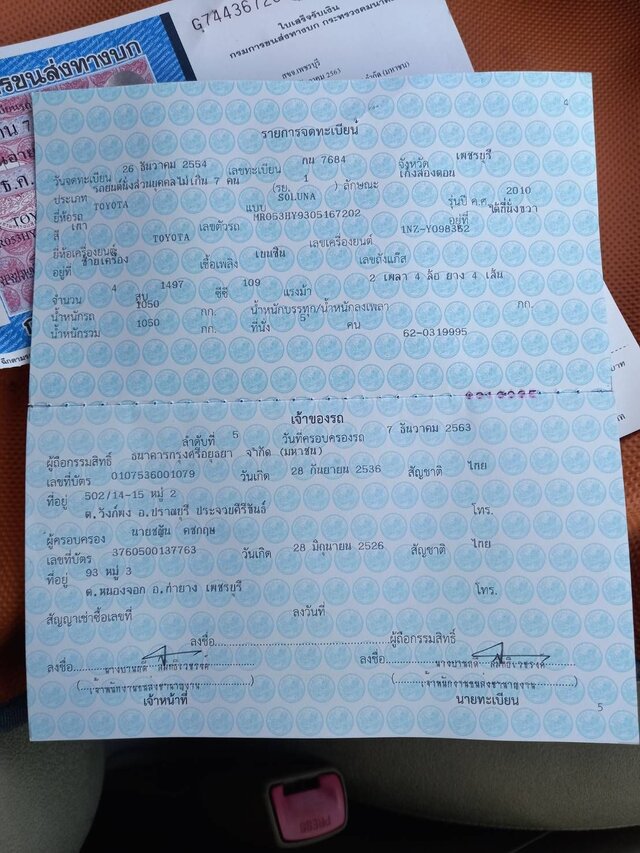 G7443672
ใบเสร็จรับเงิน
กรมการขนส่งทางบก กระทรวงคมนาคม
รขนส่งทางบก
4
รายการจดทะเบียน
วันจดทะเบียน 26 ธันวาคม 2554 เลขทะเบียน กน 7684 จังหวัด เพชรบุรี
ประเภท รถยนต์นั่งส่วนบุคคลไม่เกิน 7 คน (รย. 1 ) ลักษณะ เก๋งสองตอน
ยี่ห้อรถ TOYOTA แบบ SOLUNA รุ่นปี ค.ศ. 2010
สี เทา เลขตัวรถ MR053HY9305167202 อยู่ที่ ใต้ที่นั่งขวา
ยี่ห้อเครื่องยนต์ TOYOTA เลขเครื่องยนต์ 1NZ-Y098362
อยู่ที่ ซ้ายเครื่อง เชื้อเพลิง เบนซิน เลขถังแก๊ส
จำนวน 4 สูบ 1497 ซีซี 109 แรงม้า 2 เพลา 4 ล้อ ยาง 4 เส้น
น้ำหนักรถ 1050 กก. น้ำหนักบรรทุก/น้ำหนักลงเพลา กก.
น้ำหนักรวม 1050 กก. ที่นั่ง 5 คน 62-0319995
เจ้าของรถ
ลำดับที่ 5 วันที่ครอบครองรถ 7 ธันวาคม 2563
ผู้ถือกรรมสิทธิ์ ธนาคารกรุงศรีอยุธยา จำกัด (มหาชน)
เลขที่บัตร 0107536001079 วันเกิด 28 กันยายน 2536 สัญชาติ ไทย
ที่อยู่ 502/14-15 หมู่ 2
ต.วังก์พง อ.ปราณบุรี ประจวบคีรีขันธ์ โทร.
ผู้ครอบครอง นายชลัน คชกฤษ
เลขที่บัตร 3760500137763 วันเกิด 28 มิถุนายน 2526 สัญชาติ ไทย
ที่อยู่ 93 หมู่ 3
ต.หนองจอก อ.ท่ายาง เพชรบุรี โทร.
สัญญาเช่าซื้อเลขที่ ลงวันที่
ลงชื่อ ผู้ถือกรรมสิทธิ์
ลงชื่อ ลงชื่อ
(เจ้าพนักงานขนส่งชำนาญงาน) (เจ้าพนักงานขนส่งชำนาญงาน)
เจ้าหน้าที่ นายทะเบียน
5
PRESS